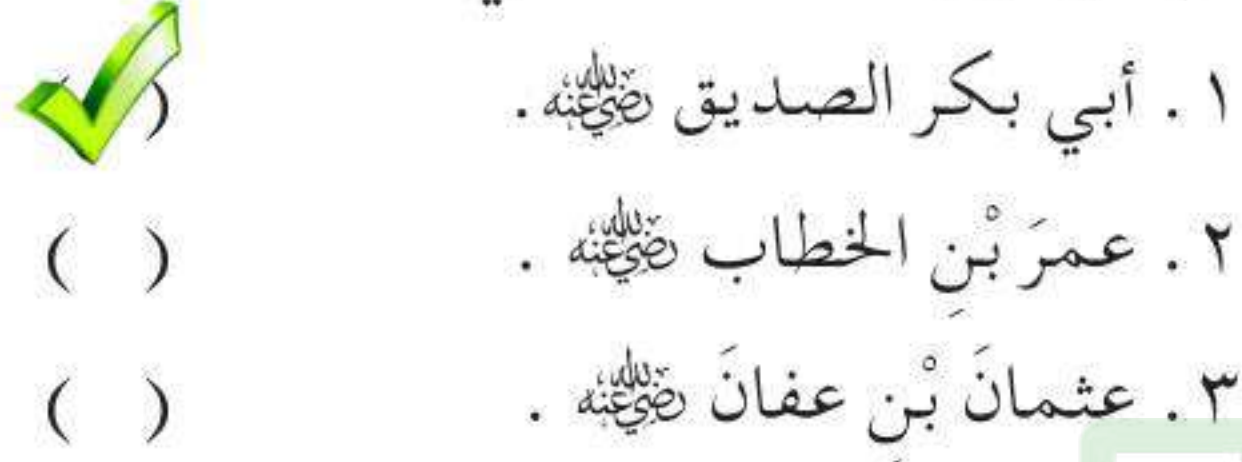 ١ . أبي بكر الصديق رضي الله عنه . ( )
٢ . عمرَ بْنِ الخطاب رضي الله عنه . ( )
٣ . عثمانَ بْنِ عفانَ رضي الله عنه . ( )